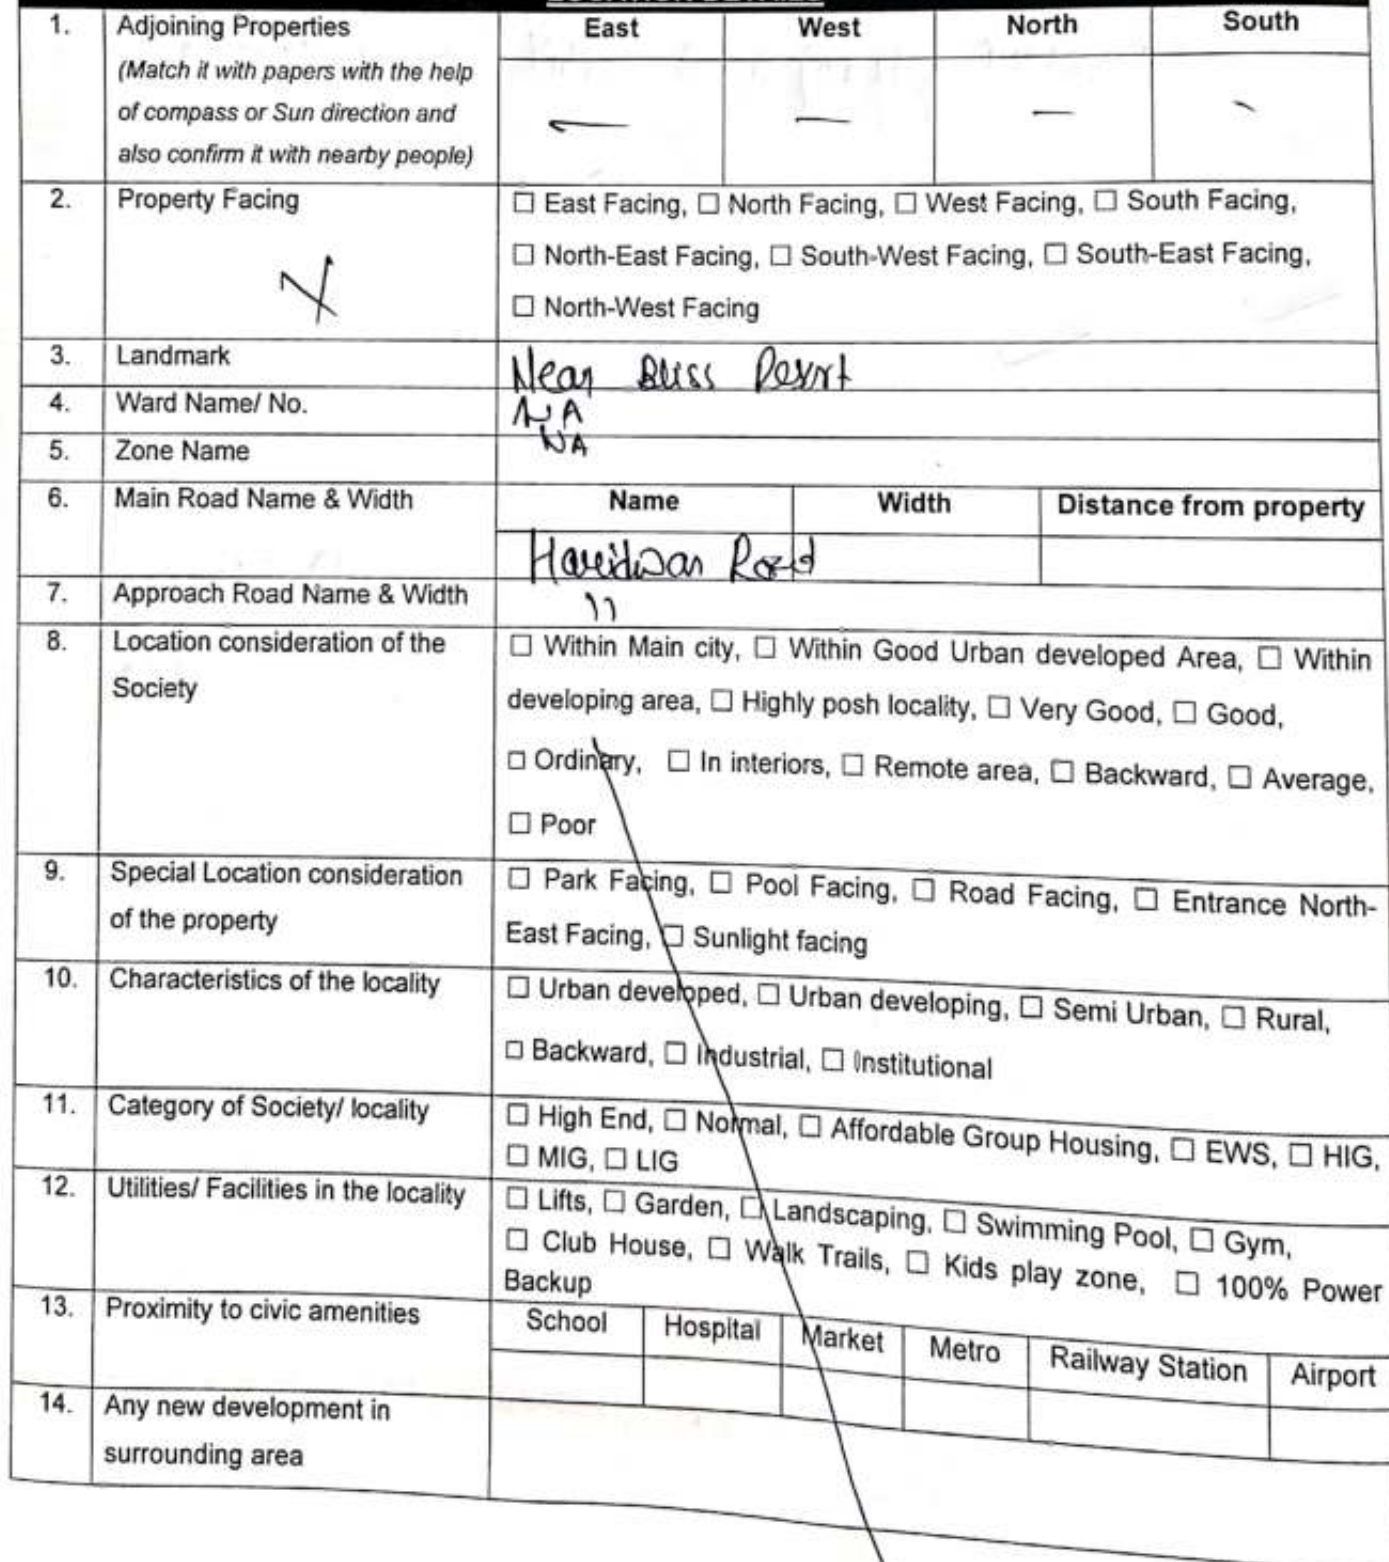 LOCATION DETAILS
1. Adjoining Properties East West North South
(Match it with papers with the help
of compass or Sun direction and
also confirm it with nearby people) — — — -
2. Property Facing ☐ East Facing, ☐ North Facing, ☐ West Facing, ☐ South Facing,
☐ North-East Facing, ☐ South-West Facing, ☐ South-East Facing,
☐ North-West Facing
3. Landmark Near Bliss Resort
4. Ward Name/ No. NA
5. Zone Name NA
6. Main Road Name & Width Name Width Distance from property
Haridwar Road
7. Approach Road Name & Width 11
8. Location consideration of the ☐ Within Main city, ☐ Within Good Urban developed Area, ☐ Within
Society developing area, ☐ Highly posh locality, ☐ Very Good, ☐ Good,
☐ Ordinary, ☐ In interiors, ☐ Remote area, ☐ Backward, ☐ Average,
☐ Poor
9. Special Location consideration ☐ Park Facing, ☐ Pool Facing, ☐ Road Facing, ☐ Entrance North-
of the property East Facing, ☐ Sunlight facing
10. Characteristics of the locality ☐ Urban developed, ☐ Urban developing, ☐ Semi Urban, ☐ Rural,
☐ Backward, ☐ Industrial, ☐ Institutional
11. Category of Society/ locality ☐ High End, ☐ Normal, ☐ Affordable Group Housing, ☐ EWS, ☐ HIG,
☐ MIG, ☐ LIG
12. Utilities/ Facilities in the locality ☐ Lifts, ☐ Garden, ☐ Landscaping, ☐ Swimming Pool, ☐ Gym,
☐ Club House, ☐ Walk Trails, ☐ Kids play zone, ☐ 100% Power
Backup
13. Proximity to civic amenities School Hospital Market Metro Railway Station Airport
14. Any new development in
surrounding area